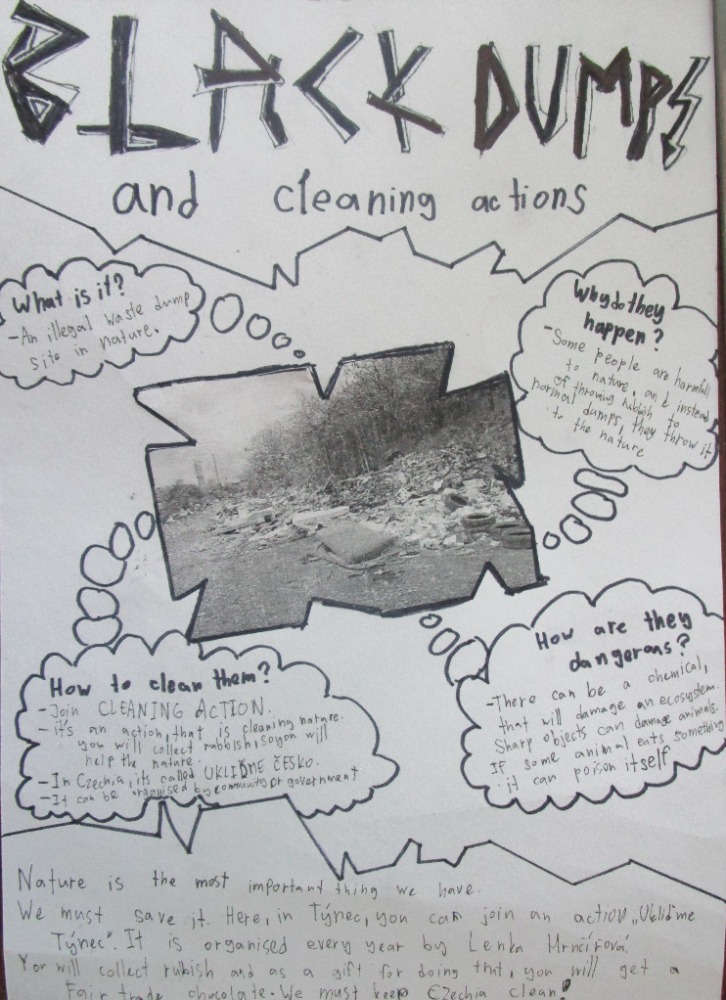 BLACK DUMPS
and cleaning actions
What is it?
-An illegal waste dump
site in nature.
Why do they
happen?
-Some people are harmfull
to nature, and instead
of throwing rubbish to
normal dumps, they throw it
to the nature
How to clean them?
-Join CLEANING ACTION.
-it's an action, that is cleaning nature.
you will collect rubbish, so you will
help the nature.
-In Czechia, its called UKLIĎME ČESKO.
-It can be organised by community or government
How are they
dangerous?
-There can be a chemical,
that will damage an ecosystem.
Sharp objects can damage animals.
IF some animal eats something
it can poison itself
Nature is the most important thing we have.
We must save it. Here, in Týnec, you can join an action „Ukliďme
Týnec". It is organised every year by Lenka Mrnčířová.
You will collect rubish and as a gift for doing that, you will get a
Fair trade chocolate. We must keep Czechia clean!